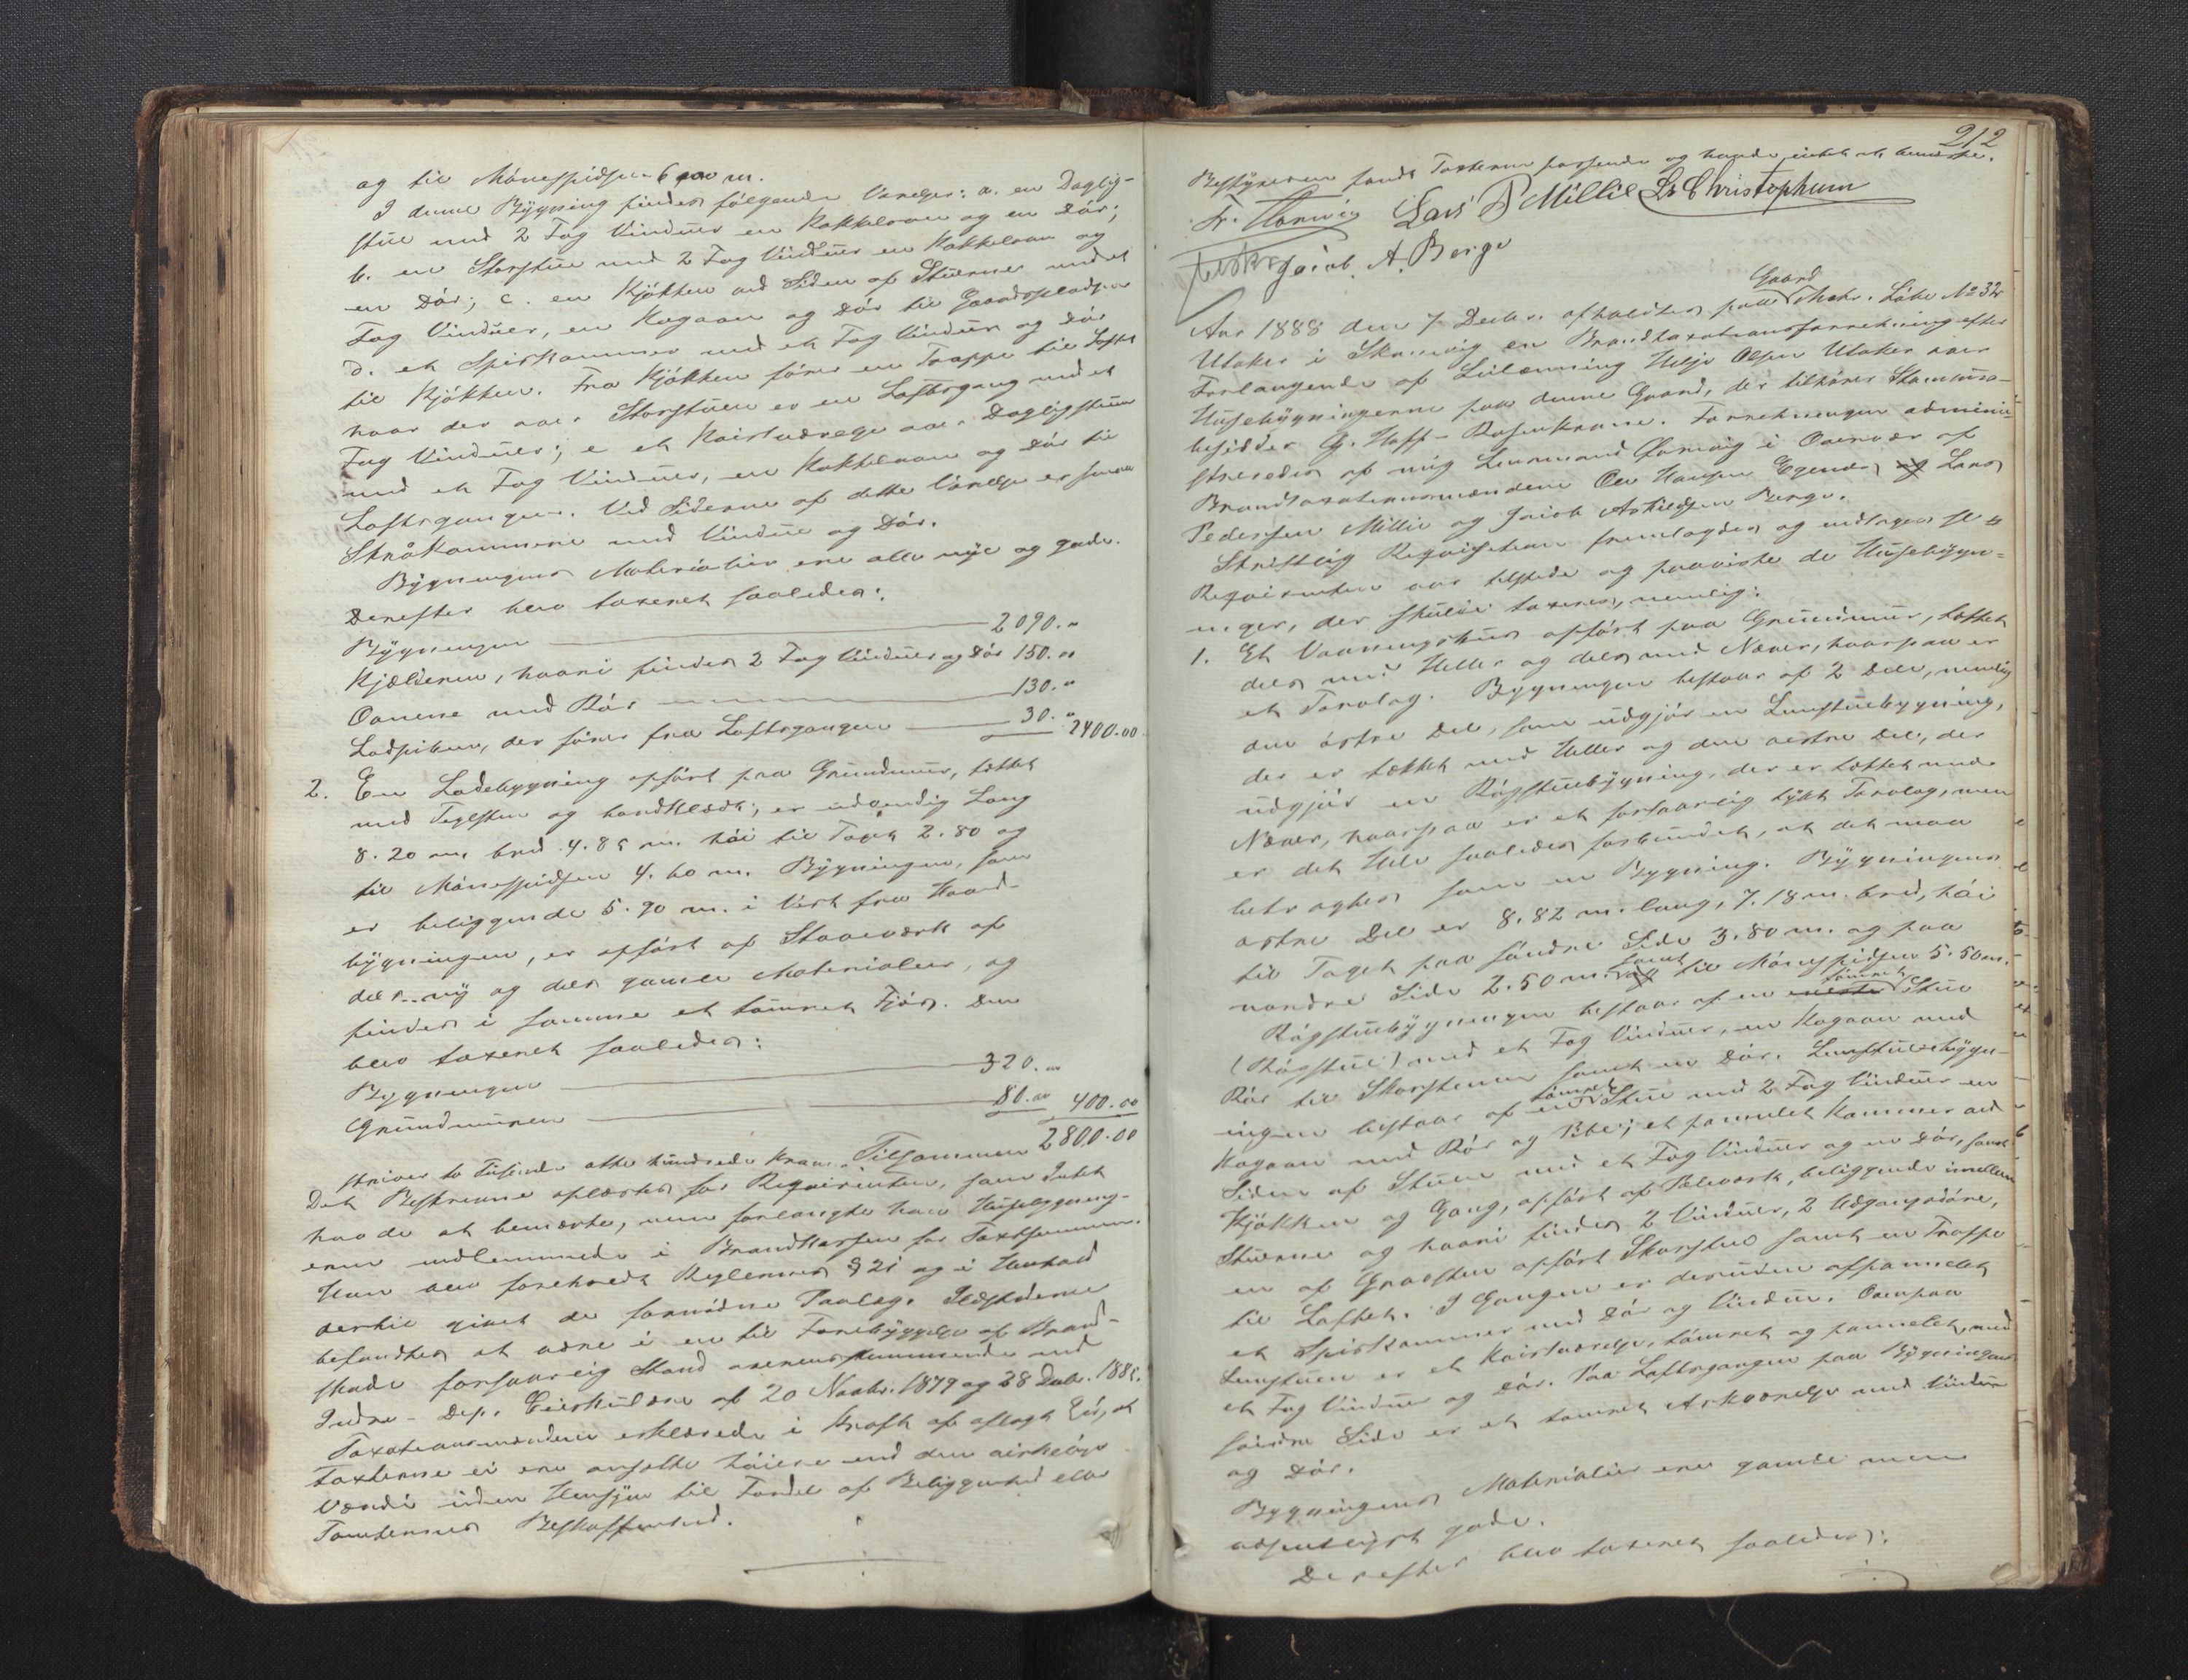 og til Mønespidsen 6.00 m.
I denne Bygning findes følgende Værelser: a. en Daglig-
stue med 2 Fag Vinduer en Kakkelovn og en Dør;
b. en Storstue med 2 Fag Vinduer en Kakkelovn og
en Dør; c. en Kjøkken ved Siden af Stuerne med et
Fag Vinduer, en Kogeovn og Dør til Gaardspladsen
d. et Spiskammer med et Fag Vinduer og Dør
til Kjøkken. Fra Kjøkken fører en Trappe til Loftet
hvor der over Storstuen er en Loftsgang med et
Fag Vinduer; e et Kvistværelse over Dagligstuen
med et Fag Vinduer, en Kakkelovn og Dør til
Loftsgangen. Ved Siderne af dette Værelse er smaa
Skråkammere med Vindue og Dør.
Bygningens Materialier ere alle nye og gode.
Derefter blev taxeret saaledes:
Bygningen 2090.„
Kjælderen, hvori findes 2 Fag Vinduer og Dør 150.„
Ovnene med Rør 130.„
Lodpiben, der fører fra Loftsgangen 30.„ 2400.00
2. En Ladebygning opført paa Grundmur, tækket
med Teglsten og bordklædt; er udvendig Lang
8.20 m. bred 4.85 m. høi til Taget 2.80 og
til Mønespidsen 4.60 m. Bygningen, som
er beliggende 5.90 m. i Vest fra Hoved-
bygningen, er opført af Stavværk af
dels ny og dels gamle Materialier, og
findes i samme et tømret Fjøs. Den
blev taxeret saaledes:
Bygningen 320.„
Grundmuren 80.00 400.00
Tilsammen 2800.00
skriver to Tusinde otte hundrede Kroner.
Det Beskrevne oplæstes for Requirenten, som Intet
havde at bemærke, men forlangte han Husebygning-
erne indlemmede i Brandkassen for Taxtsummen.
Han blev foreholdt Reglernes § 21 og i Henhold
dertil givet de fornødne Paalæg. Ildstederne
befandtes at være i en til Forebyggelse af Brand-
skade forsvarlig Stand overensstemmende med
Indre-Dep. Cirkulære af 20 Novbr. 1879 og 28 Debr. 1881.
Taxationsmændene erklærede i Kraft af aflagt Ed, at
Taxterne ei ere ansatte høiere end den virkelige
Værdi uden Hensyn til Fordel af Beliggenhed eller
Tomternes Beskaffenhed.
212
Bestyreren fandt Taxterne passende og havde intet at bemærke.
Fr. Lars P Millie Ls Christophum
Jacob. A. Berge
Aar 1888 den 7 Decbr. afholdtes paa Gaard Matr. Løbe No 32
Utaker i Skonevig en Brandtaxationsforretning efter
Forlangende af Leilænning Helje Olsen Utaker over
Husebygningerne paa denne Gaard, der tilhører Stamhuus-
besidder G. Hoff-Rosenkrone. Forretningen admini-
streredes af mig Lensmand i Overvær af
Brandtaxationsmændene Ole Hansen Egenes og Lars
Pedersen Millie og Jacob Askildsen Berge.
Skriftlig Requisition fremlagdes og indtages
Requirenten var tilstede og paaviste de Husebygn-
inger, der skulde taxeres, nemlig:
1. Et Vaaningshus opført paa Grundmur, tækket
dels med Heller og dels med Næver, hvorpaa er
et Torvlag. Bygningen bestaar af 2 Dele, nemlig
den østre Del, som udgjør en Lemstuebygning,
der er tækket med Heller og den vestre Del, der
udgjør en Røgstuebygning, der er tækket med
Næver, hvorpaa er et forsvarlig tykt Torvlag, men
er det Hele saaledes forbundet, at det maa
betragtes som en Bygning. Bygningens
østre Del er 8.82 m. lang, 7.18 m. bred, høi
til Taget paa søndre Side 3.80 m. og paa
nordre Side 2.50 m. samt til Mønespidsen 5.50 m.
Røgstuebygningen bestaar af en tømret Stue
(Røgstue) med et Fag Vinduer, en Kogeovn med
Rør til Skorstenen samt en Dør. Lemstuebygn-
ingen bestaar af en tømret Stue med 2 Fag Vinduer en
Kogeovn med Rør og Pibe; et panelet Kammer ved
Siden af Stuen med et Fag Vinduer og en Dør, samt
Kjøkken og Gang, opført af Pæleværk, beliggende imellem
Stuerne og hvori findes 2 Vinduer, 2 Udgangsdøre,
en af Graasten opført Skorsten samt en Trappe
til Loftet. I Gangen er desuden afpannelet
et Spiskammer med Dør og Vindue. Ovenpaa
Lemstuen er et Kvistværelse, tømret og pannelet, med
et Fag Vinduer og Dør. Paa Loftsgangen paa Bygningens
søndre Side er et tømret Arkværelse med Vindue
og Dør.
Bygningens Materialier ere gamle men
væsentligst gode.
Derefter blev taxeret saaledes: